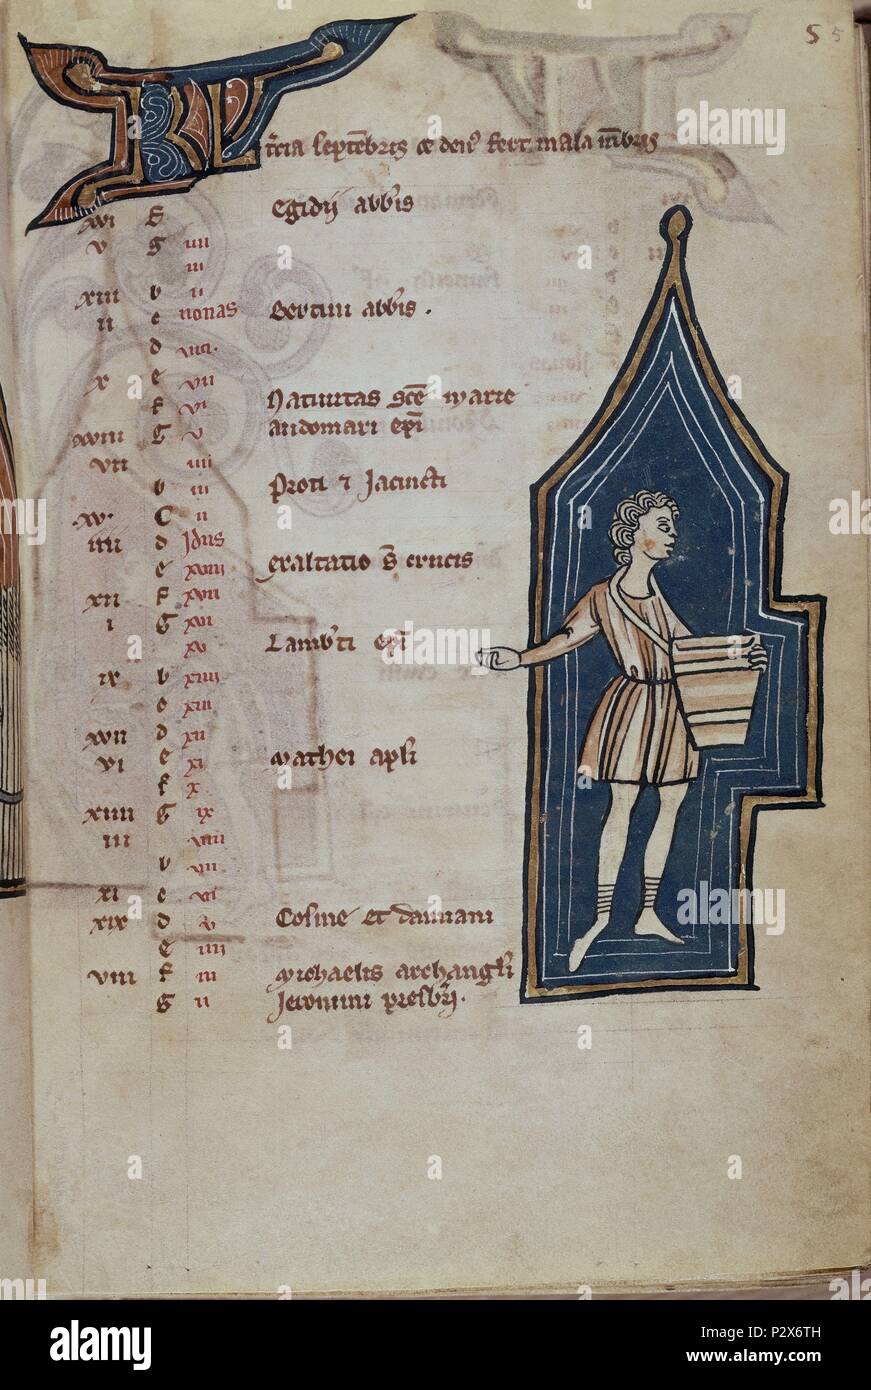 5 5
KL
t̄cia septēbris & den⁹ fert mala m̄bris
xvi f Egidij abb'is
v g iiii
iii
xiii b ii
ii c nonas Bertini abb'is .
d viii.
x e vii
f vi Natiuitas sc̄e marie
xviii G v audomari ep̄i
vii iiii
b iii Proti ⁊ Jacincti
xv. C ii
iiii d Idus
e xviii exaltatio s̄ crucis
xii f xvii
i G xvi
xv Lamb'ti ep̄i
ix b xiiii
c xiii
xvii d xii
vi e xi mathei apl̄i
f x
xiiii G ix
iii viii
b vii
xi c vi
xix d v Cosme et damiani
e iiii
viii f iii michaelis archangl̄i
G ii Jeronimi presb'ri.
a
alamy
Image ID: P2X6TH
www.alamy.com